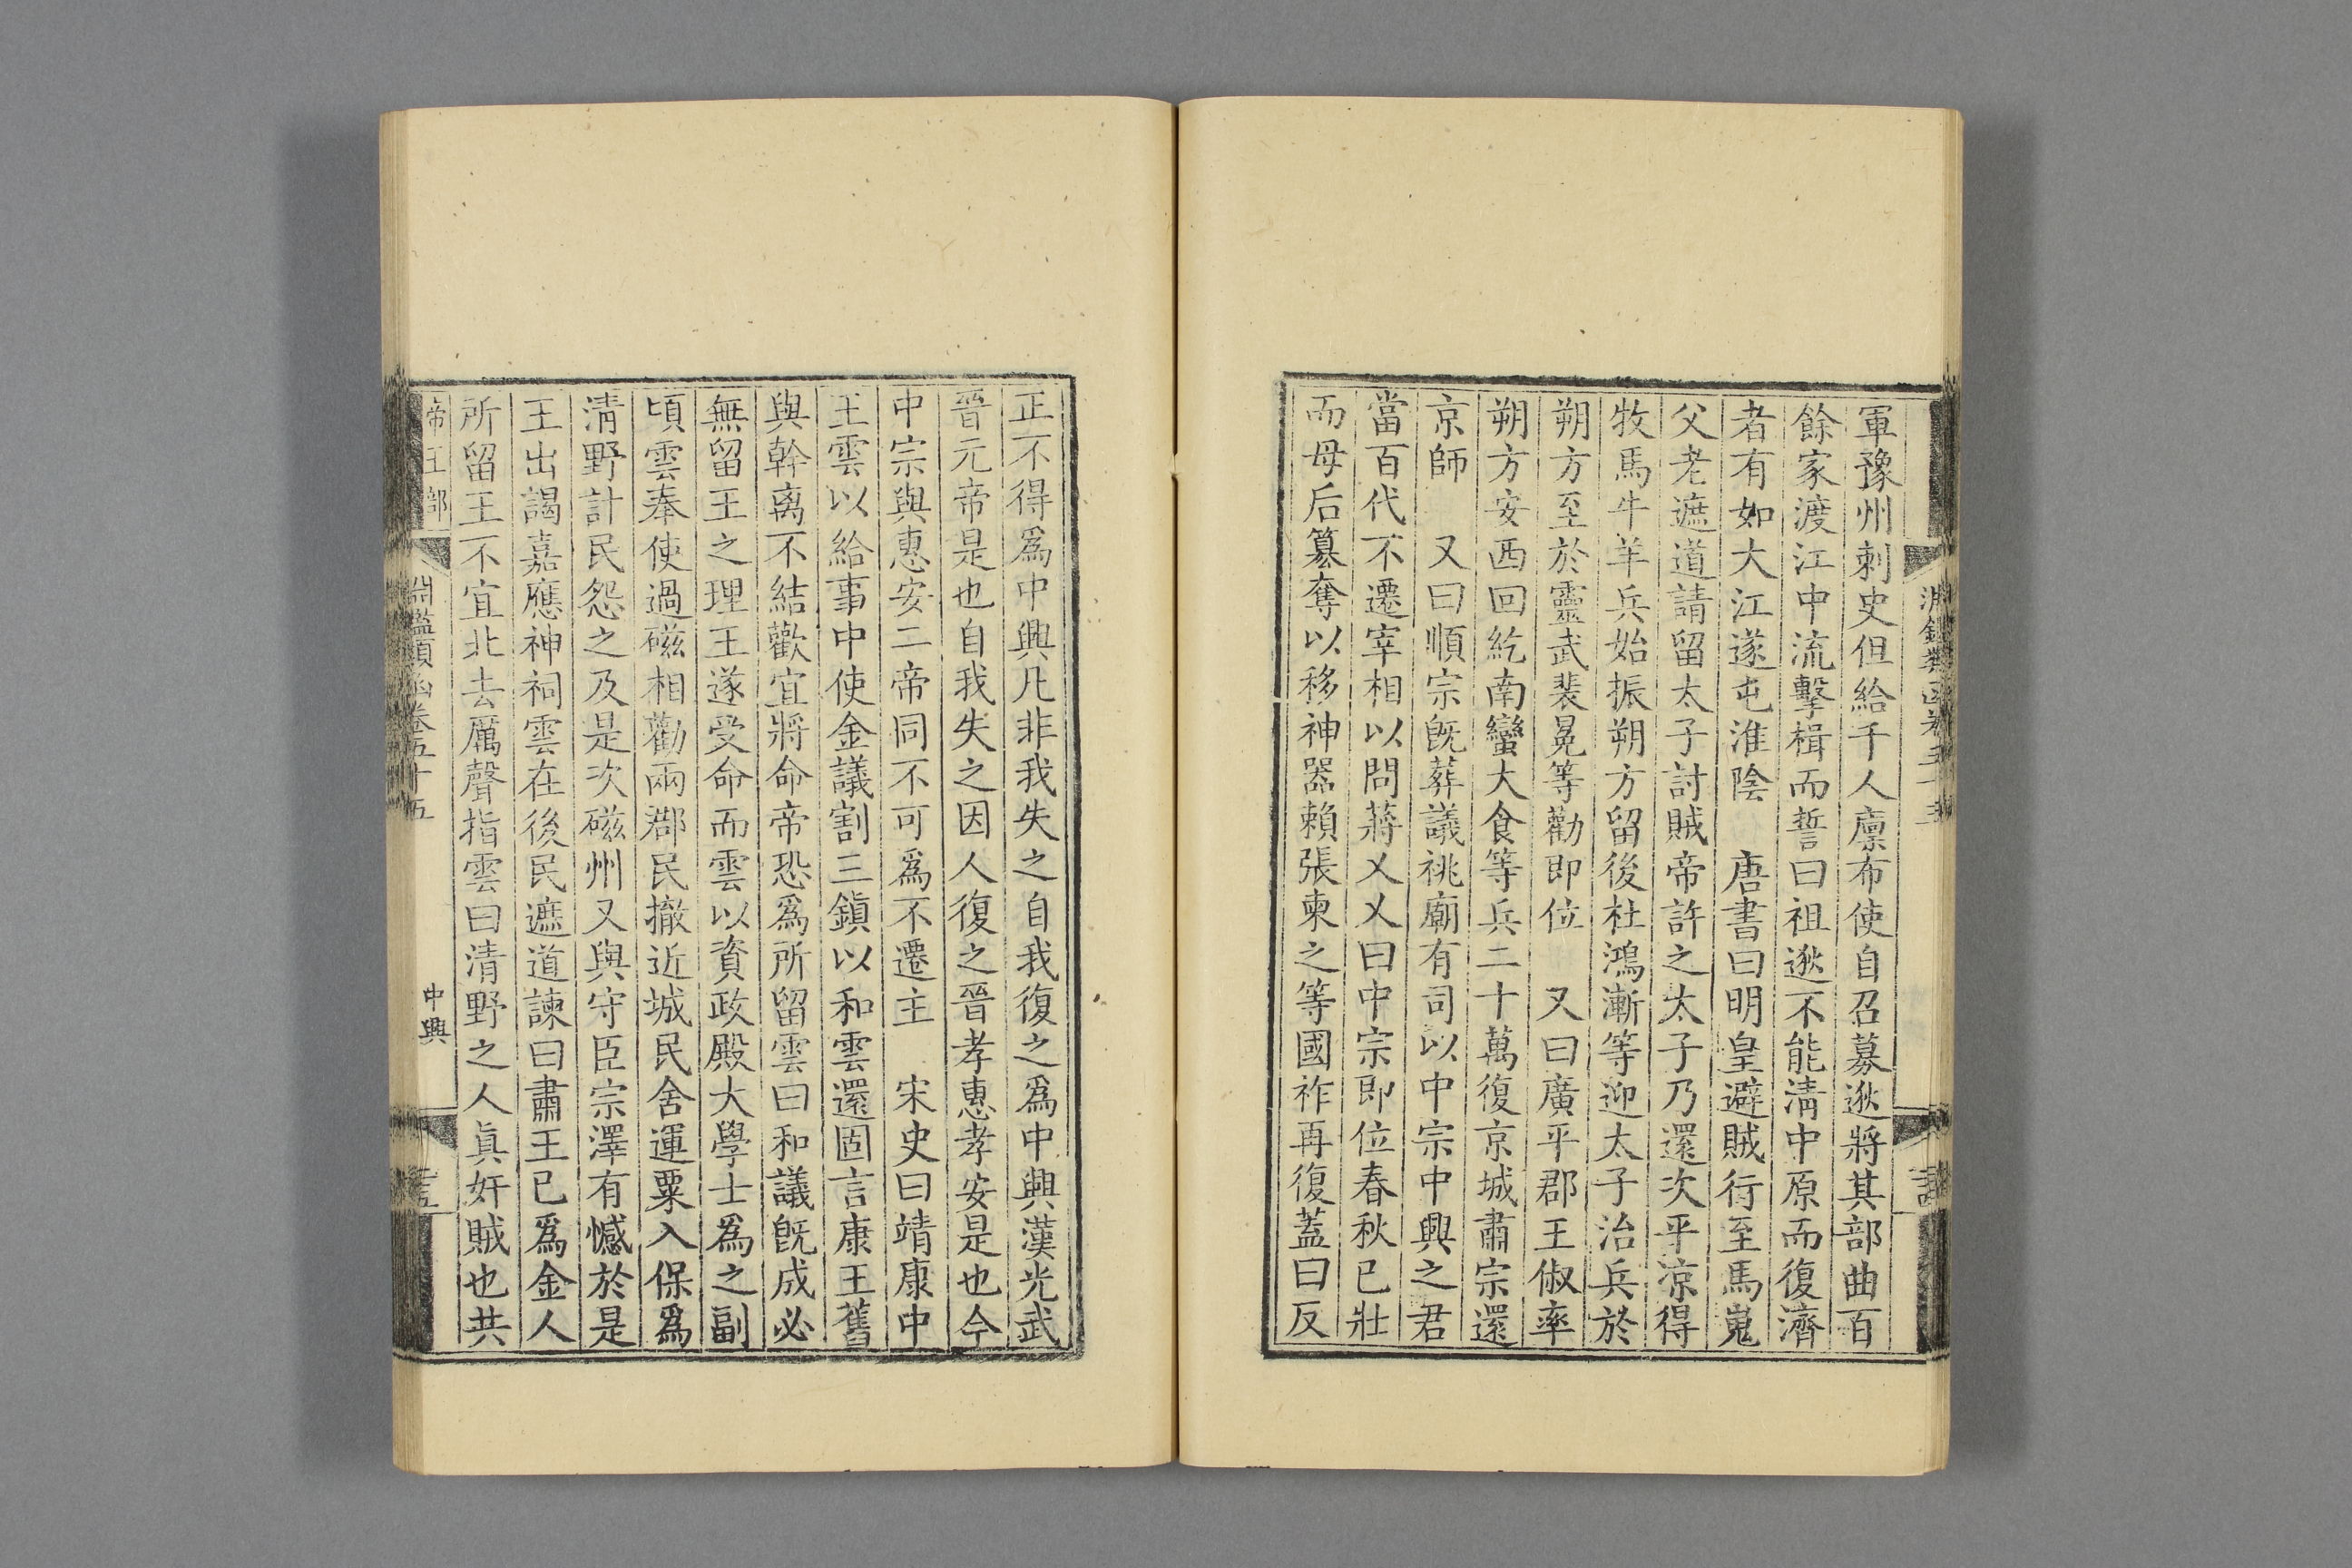 軍豫州刺史但給千人廩布使自召募逖將其部曲百
餘家渡江中流擊楫而誓曰祖逖不能淸中原而復濟
者有如大江遂屯淮陰　唐書曰明皇避賊行至馬嵬
父老遮道請留太子討賊帝許之太子乃還次平涼得
牧馬牛羊兵始振朔方留後杜鴻漸等迎太子治兵於
朔方至於靈武裴冕等勸即位　又曰廣平郡王俶率
朔方安西回紇南蠻大食等兵二十萬復京城肅宗還
京師　又曰順宗旣葬議祧廟有司以中宗中興之君
當百代不遷宰相以問蔣乂乂曰中宗即位春秋已壯
而母后篡奪以移神器賴張柬之等國祚再復蓋曰反
正不得爲中興凡非我失之自我復之爲中興漢光武
晉元帝是也自我失之因人復之晉孝惠孝安是也今
中宗與惠安二帝同不可爲不遷主　宋史曰靖康中
王雲以給事中使金議割三鎭以和雲還固言康王舊
與幹离不結歡宜將命帝恐爲所留雲曰和議旣成必
無留王之理王遂受命而雲以資政殿大學士爲之副
頃雲奉使過磁相勸兩郡民撤近城民舍運粟入保爲
清野計民怨之及是次磁州又與守臣宗澤有憾於是
王出謁嘉應神祠雲在後民遮道諫曰肅王已爲金人
所留王不宜北去厲聲指雲曰清野之人眞奸賊也共
帝王部
淵鑑類函卷五十五
中興